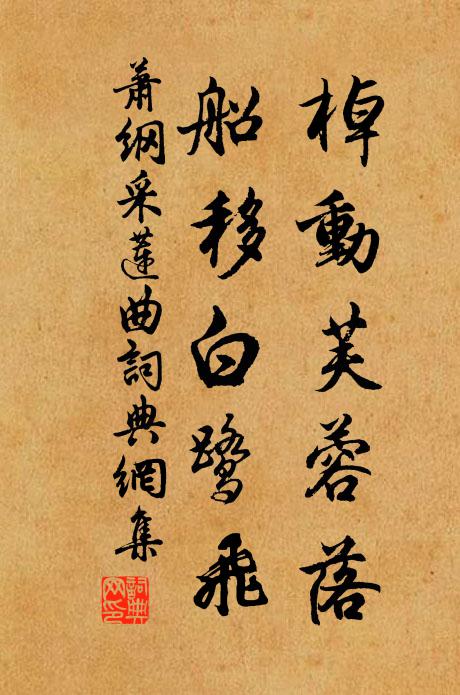 棹動芙蓉落
船移白鷺飛
蕭綱采蓮曲詞典網集
詞典網印